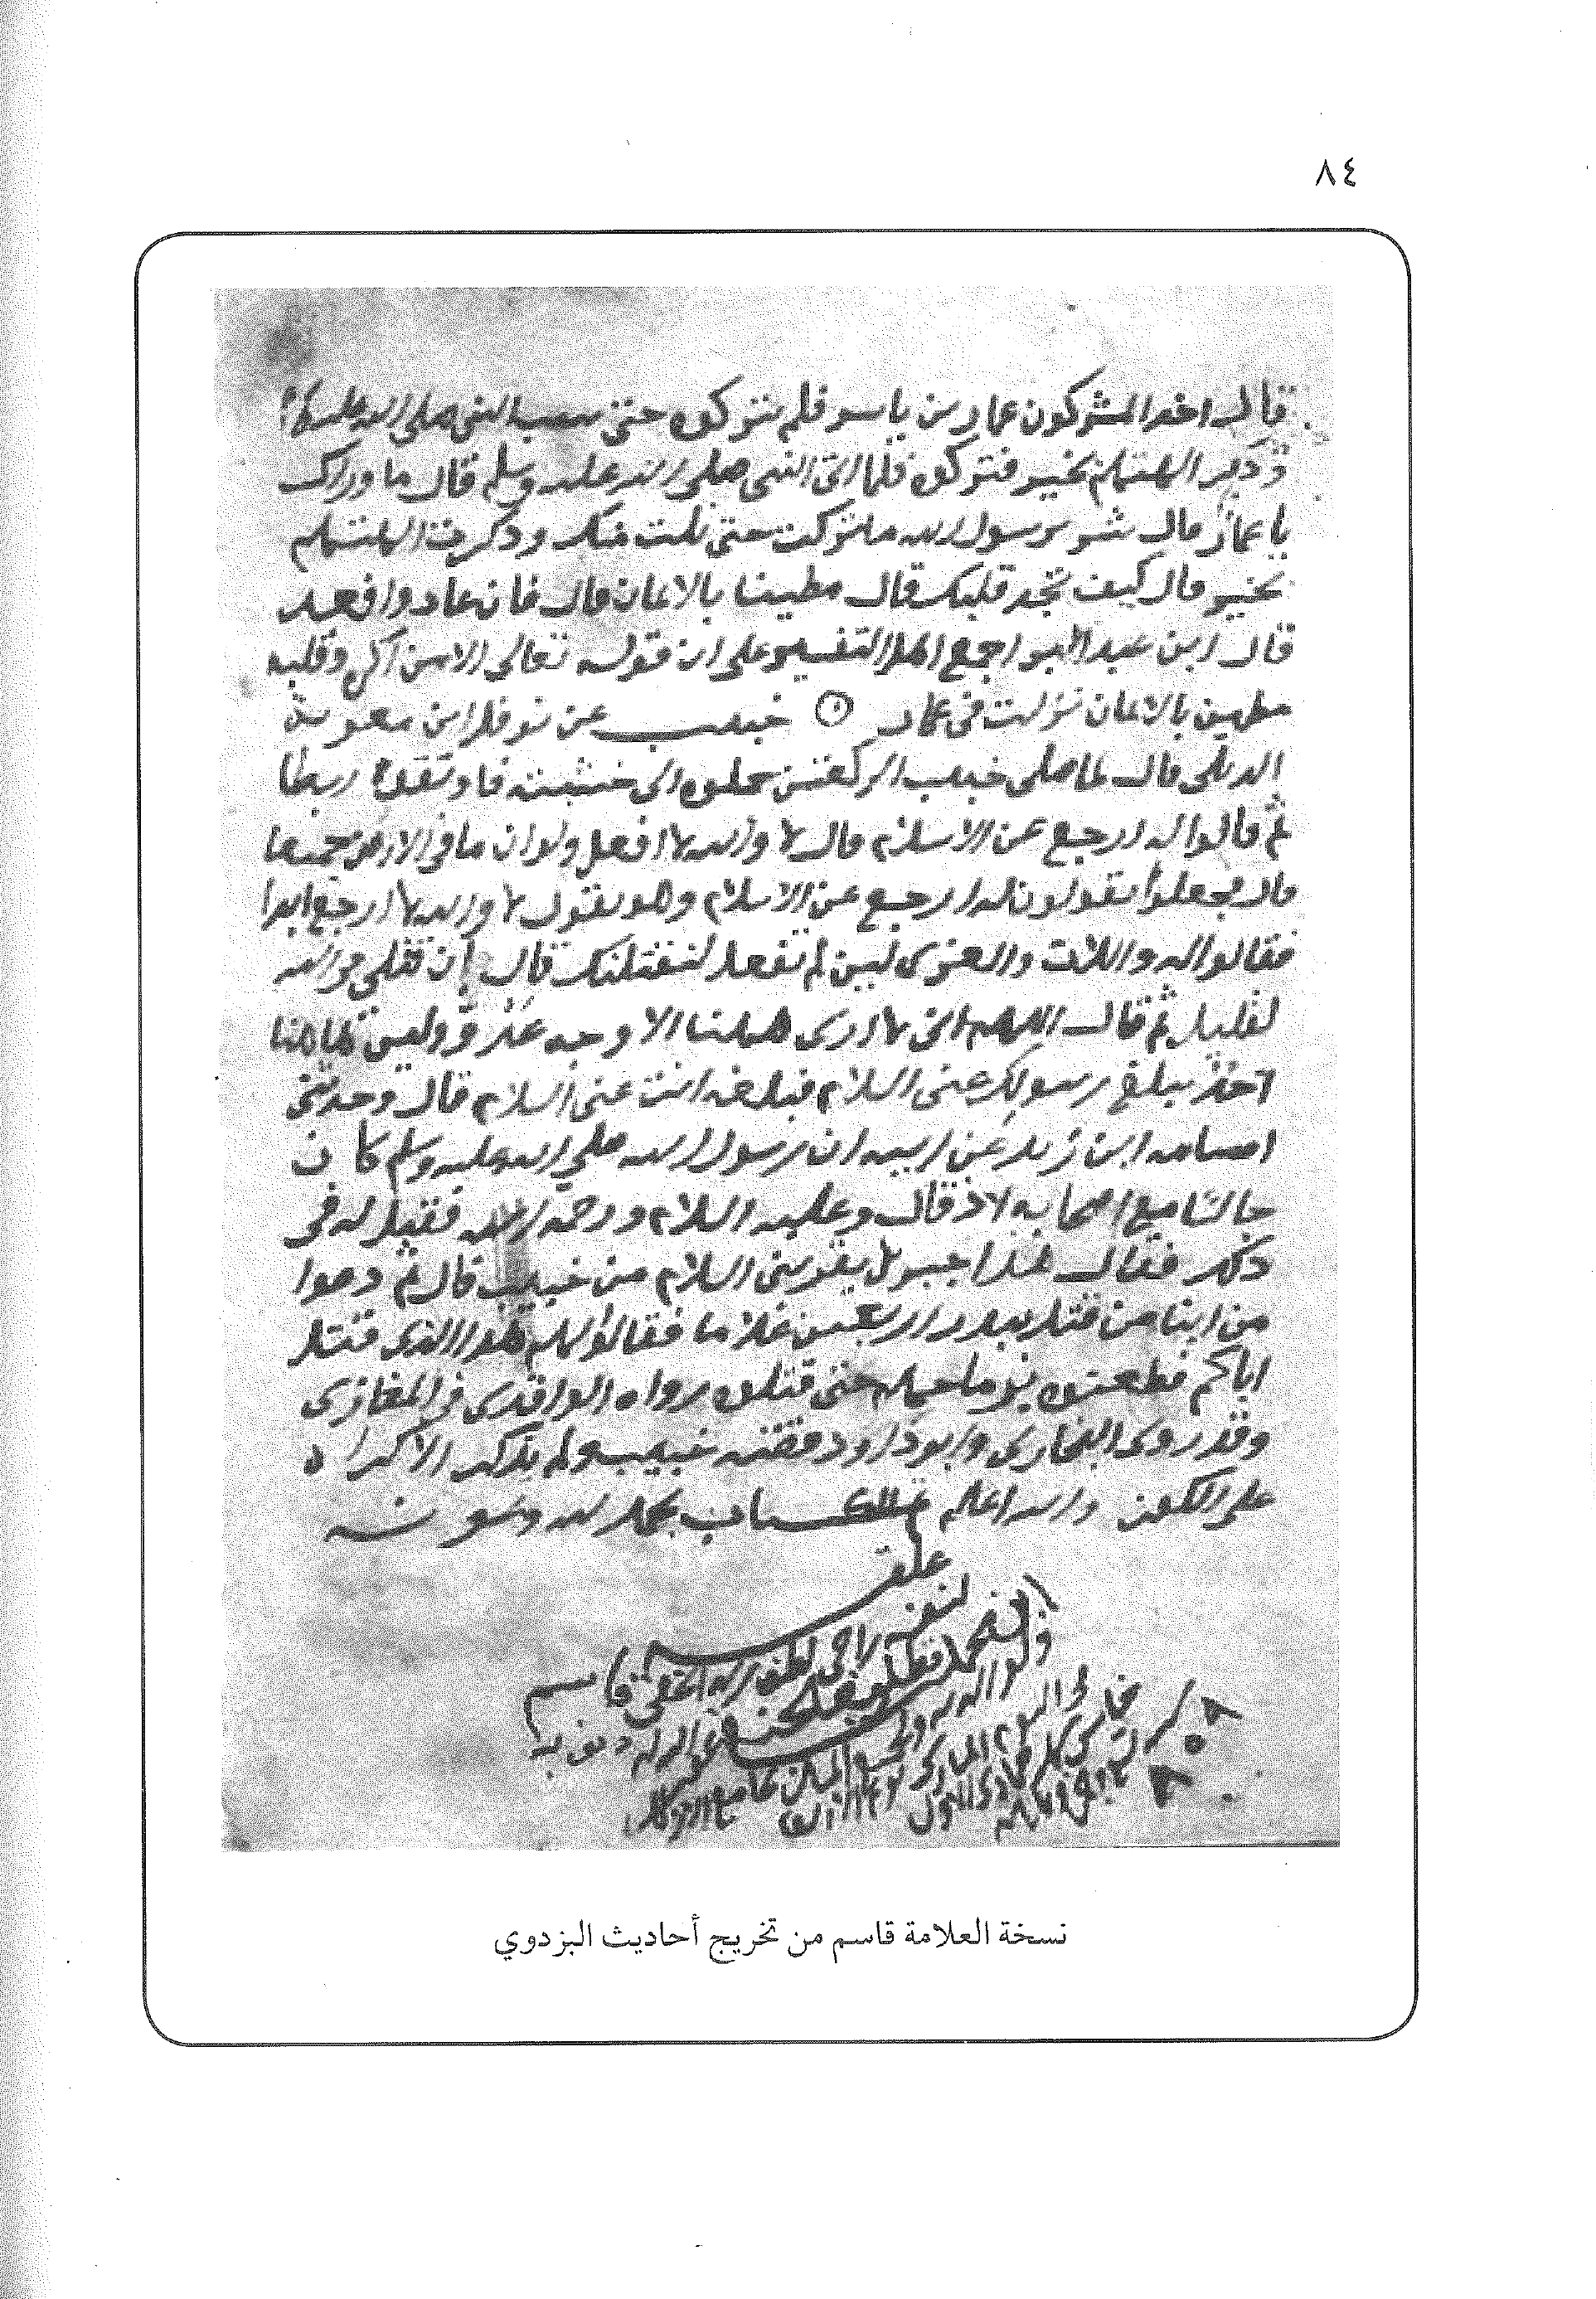 ٨٤
قال اخذ المشركون عمار بن ياسر فلم يتركوه حتى سب النبي صلى الله عليه
وذكر الهتهم بخير فتركوه فلما اتى النبي صلى الله عليه وسلم قال ما وراك
يا عمار قال شر يرسول الله ما تركت حتى نلت منك وذكرت الهتهم
بخير قال كيف تجد قلبك قال مطمينا بالايمان قال فان عادوا فعد
قال ابن عبد البر اجمع اهل التفسير على ان قوله تعالى الا من اكره وقلبه
مطمين بالايمان نزلت في عمار خبيب عن نوفل ابن معوية
الديلي قال لما صلى خبيب الركعتين حملوه الى خشبته فاوثقوه رباطا
ثم قالوا له ارجع عن الاسلام قال لا والله لا افعل ولو ان ما في الارض جميعا
قال فجعلوا يقولون له ارجع عن الاسلام وهو يقول لا والله لا ارجع ابدا
فقالوا له واللات والعزى لين لم تفعل لنقتلنك قال ان قتلي في الله
لقليل ثم قال اللهم اني لا ارى ههنا الا وجه عدو وليس ههنا
احد يبلغ رسولك عني السلام فبلغه انت عني السلام قال وحدثني
اسامة ابن زيد عن ابيه ان رسول الله صلى الله عليه وسلم كان
جالسا مع اصحابه اذ قال وعليه السلام ورحمة الله فقيل له في
ذلك فقال هذا جبريل يقريني السلام من خبيب قال ثم دعوا
من ابنا من قتل ببدر اربعين غلاما فقالوا لهم هذا الذي قتل
اباكم فطعنوه برماحهم حتى قتلوه رواه الواقدي في المغازي
وقد روى البخاري وابو داود قصة خبيب ولم يذكر الاكراه
على الكفر والله اعلم تم الكتاب بحمد الله وعونه
علقه
لنفسه راجي لطف ربه الخفي قاسم
نسخة العلامة قاسم من تخريج أحاديث البزدوي